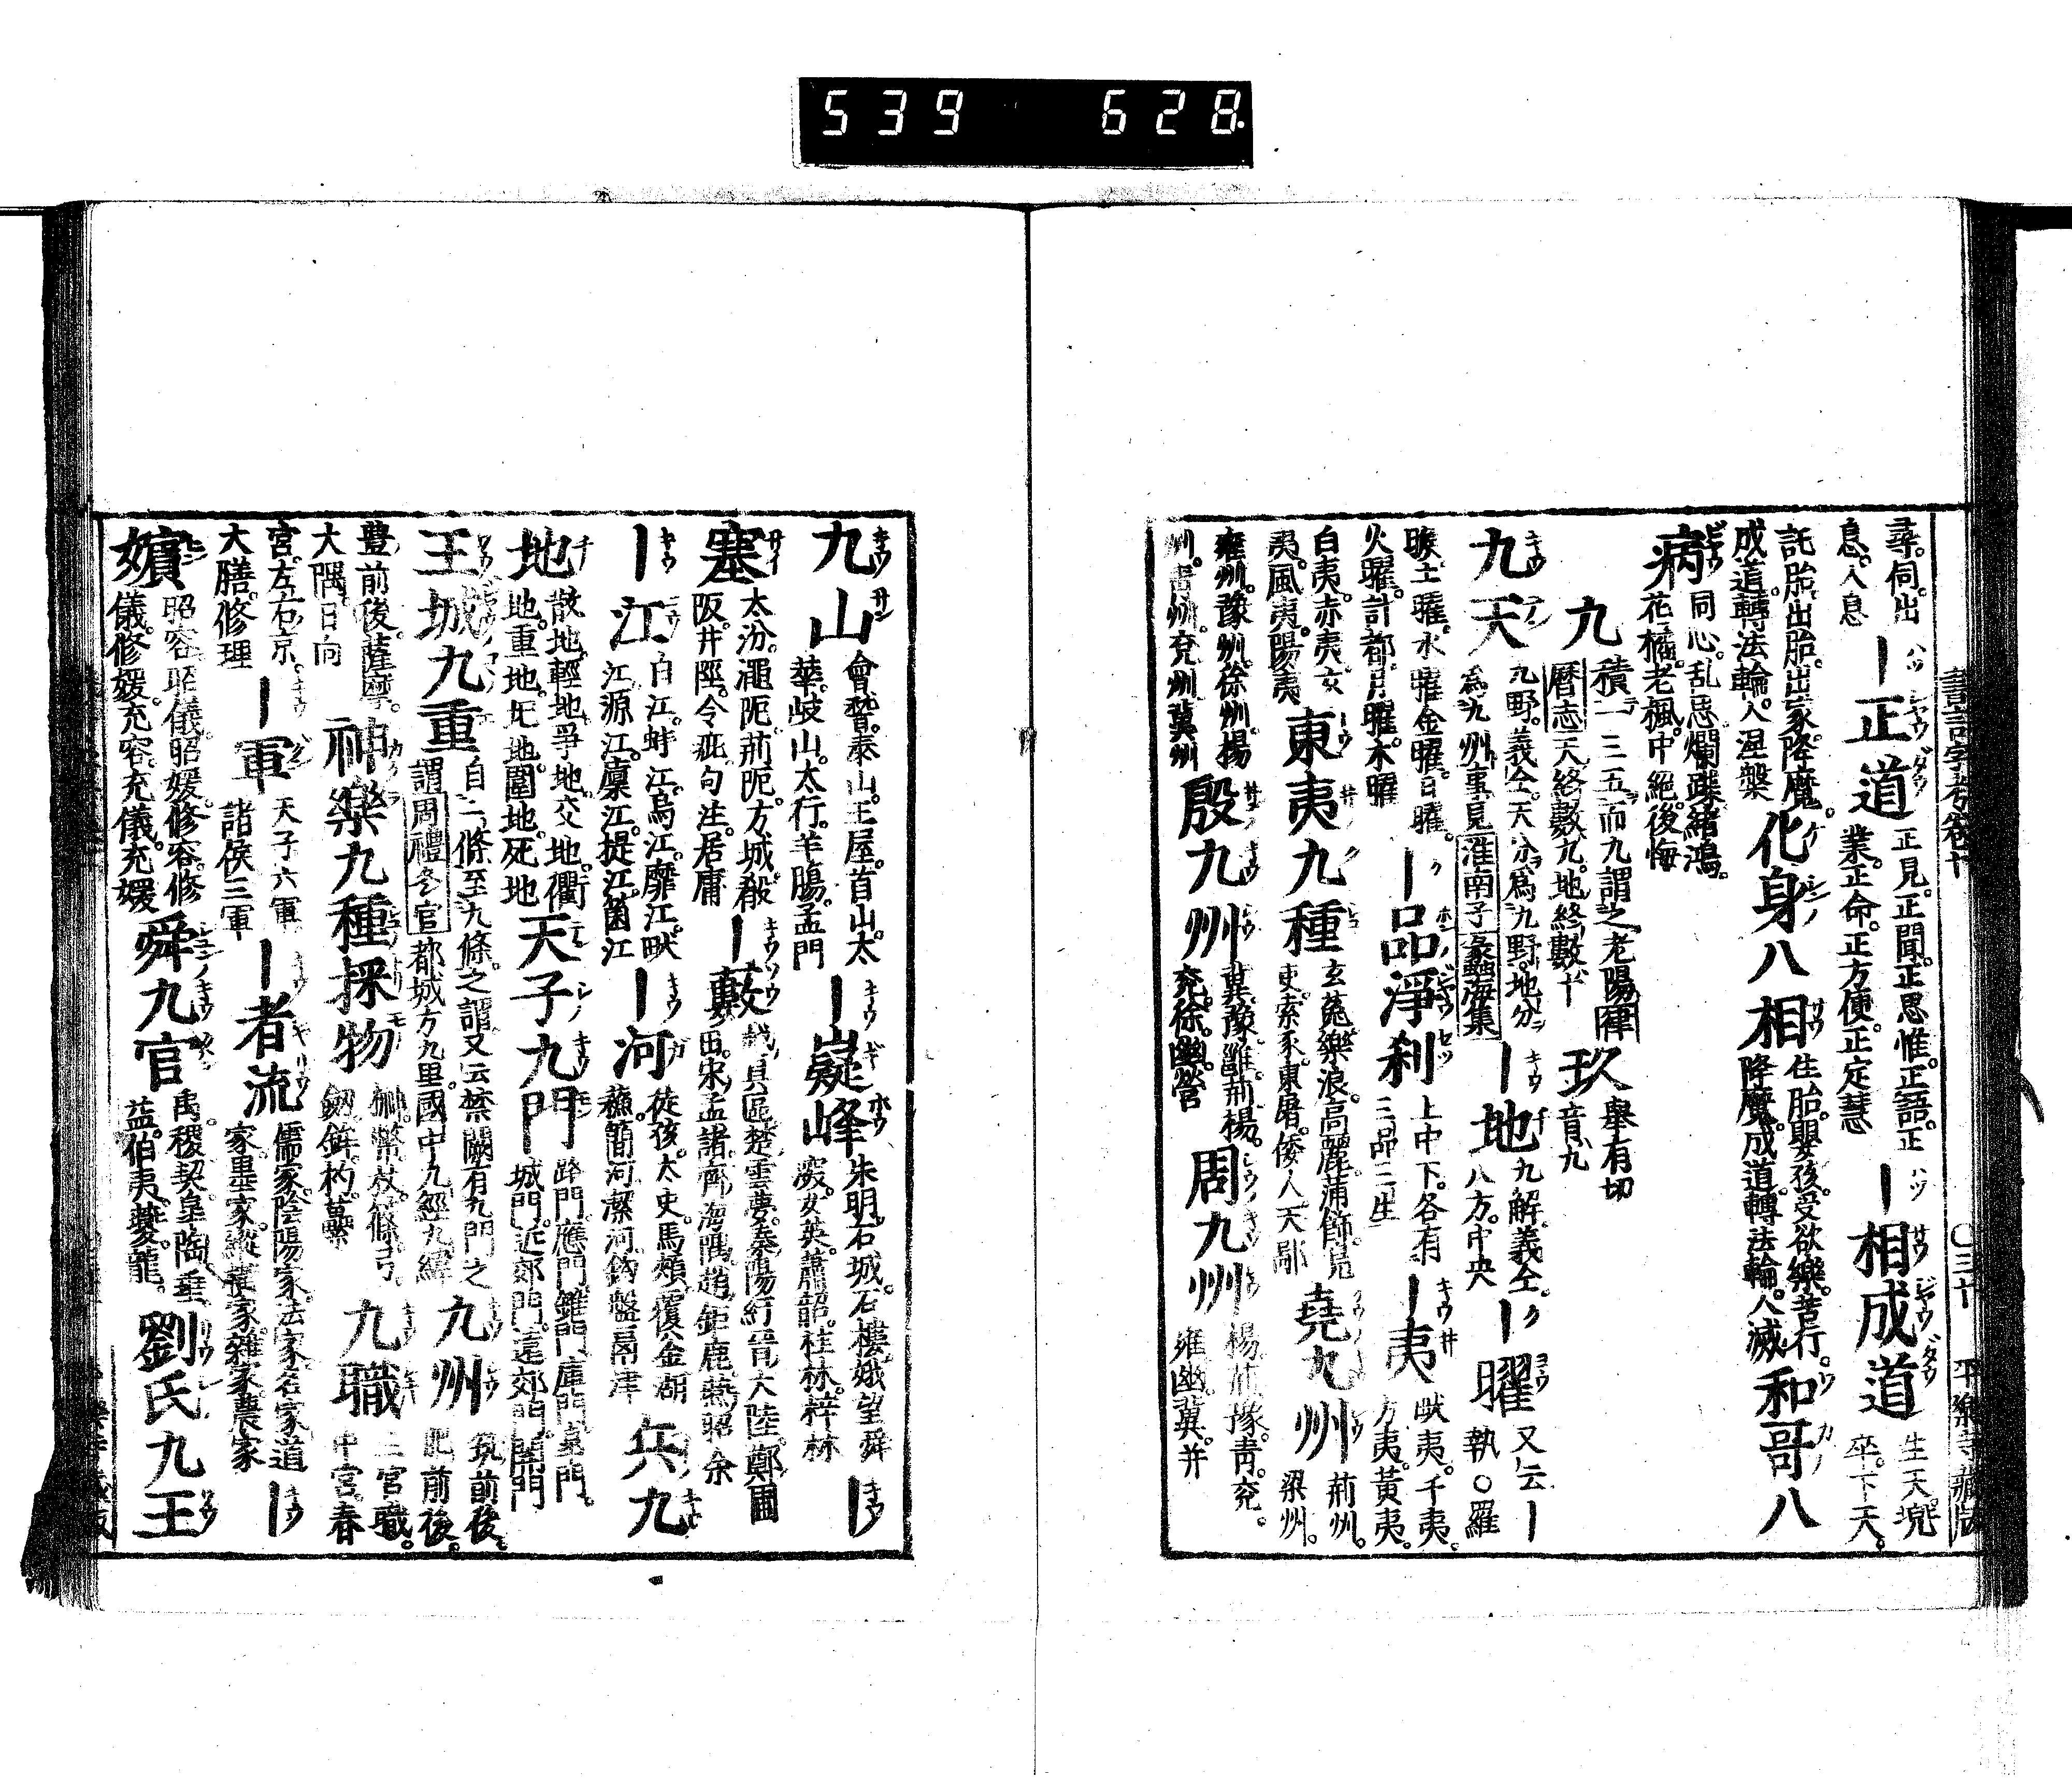 539 628
尋。伺。出息。入息
｜正道 正見。正聞。正思惟。正語。正業。正命。正方便。正定慧
｜相成道 生天。卒。下天。
託胎。出胎。出家。降魔。成道。轉法輪。入涅槃
化身八相 住胎。嬰孩。受欲樂。苦行。降魔。成道。轉法輪。入滅
和哥八
病 同心。乱思。爛蹀。緒鴻。花橘。老楓。中絕。後悔
九 積一三五而九謂之老陽律暦志天終數九。地終數十
玖 舉有切音九
九天 九野。義仝。天分爲九野。地分爲九州事見淮南子蠡海集
｜地 九解義仝。八方。中央
｜曜 又云｜執〇羅
睺。土曜。水曜。金曜。日曜。火曜。計都。月曜。木曜
｜品淨刹 上中下。各有三品三生
｜夷 畎夷。千夷。方夷。黃夷。
白夷。赤夷。玄夷。風夷。陽夷
東夷九種 玄菟。樂浪。高麗。蒲飾。鳧更。索家。東屠。倭人。天鄙
堯九州 荊州。梁州。
雍州。豫州。徐州。揚州。青州。兗州。冀州
殷九州 冀。豫。雝。荊。楊。兗。徐。幽。營
周九州 楊。荊。豫。靑。兗。雍。幽。冀。并
九山 會䅲。泰山。王屋。首山。太華。岐山。太行。羊腸。孟門
｜嶷峰 朱明。石城。石樓。娥望。舜源。女英。蕭韶。桂林。梓林
｜
塞 太汾。澠阨。荊阨。方城。殽阪。井陘。令疵。句注。居庸
｜藪 越具區。楚雲夢。秦陽紆。晉大陸。鄭圃田。宋孟諸。齊海隅。趙鉅鹿。燕昭余
｜江 白江。蚌江。烏江。靡江。畎江。源江。廩江。提江。箘江
｜河 徒孩。太史。馬頰。覆金。胡蘇。簡河。潔河。鈎盤。鬲津
兵九
地 散地。輕地。爭地。交地。衢地。重地。圯地。圍地。死地
天子九門 路門。應門。雉門。庫門。皐門。城門。近郊門。遠郊門。關門
王城九重 自一條至九條。之謂又云禁闕有九門之謂周禮冬官都城方九里。國中九經九緯
九州 筑前後。肥前後。
豊前後。薩摩。大隅。日向
神樂九種採物 榊。幣。杖。篠。弓。劒。鉾。杓。蘰
九職 三宮職。中宮。春
宮。左右京。大膳。修理
｜軍 天子六軍諸侯三軍
｜者流 儒家。陰陽家。法家。名家。道家。墨家。縱橫家。雜家。農家
｜
嬪 昭容。昭儀。昭媛。修容。修儀。修媛。充容。充儀。充媛
舜九官 禹。稷。契。皐陶。垂。益。伯夷。夔。龍。
劉氏九王